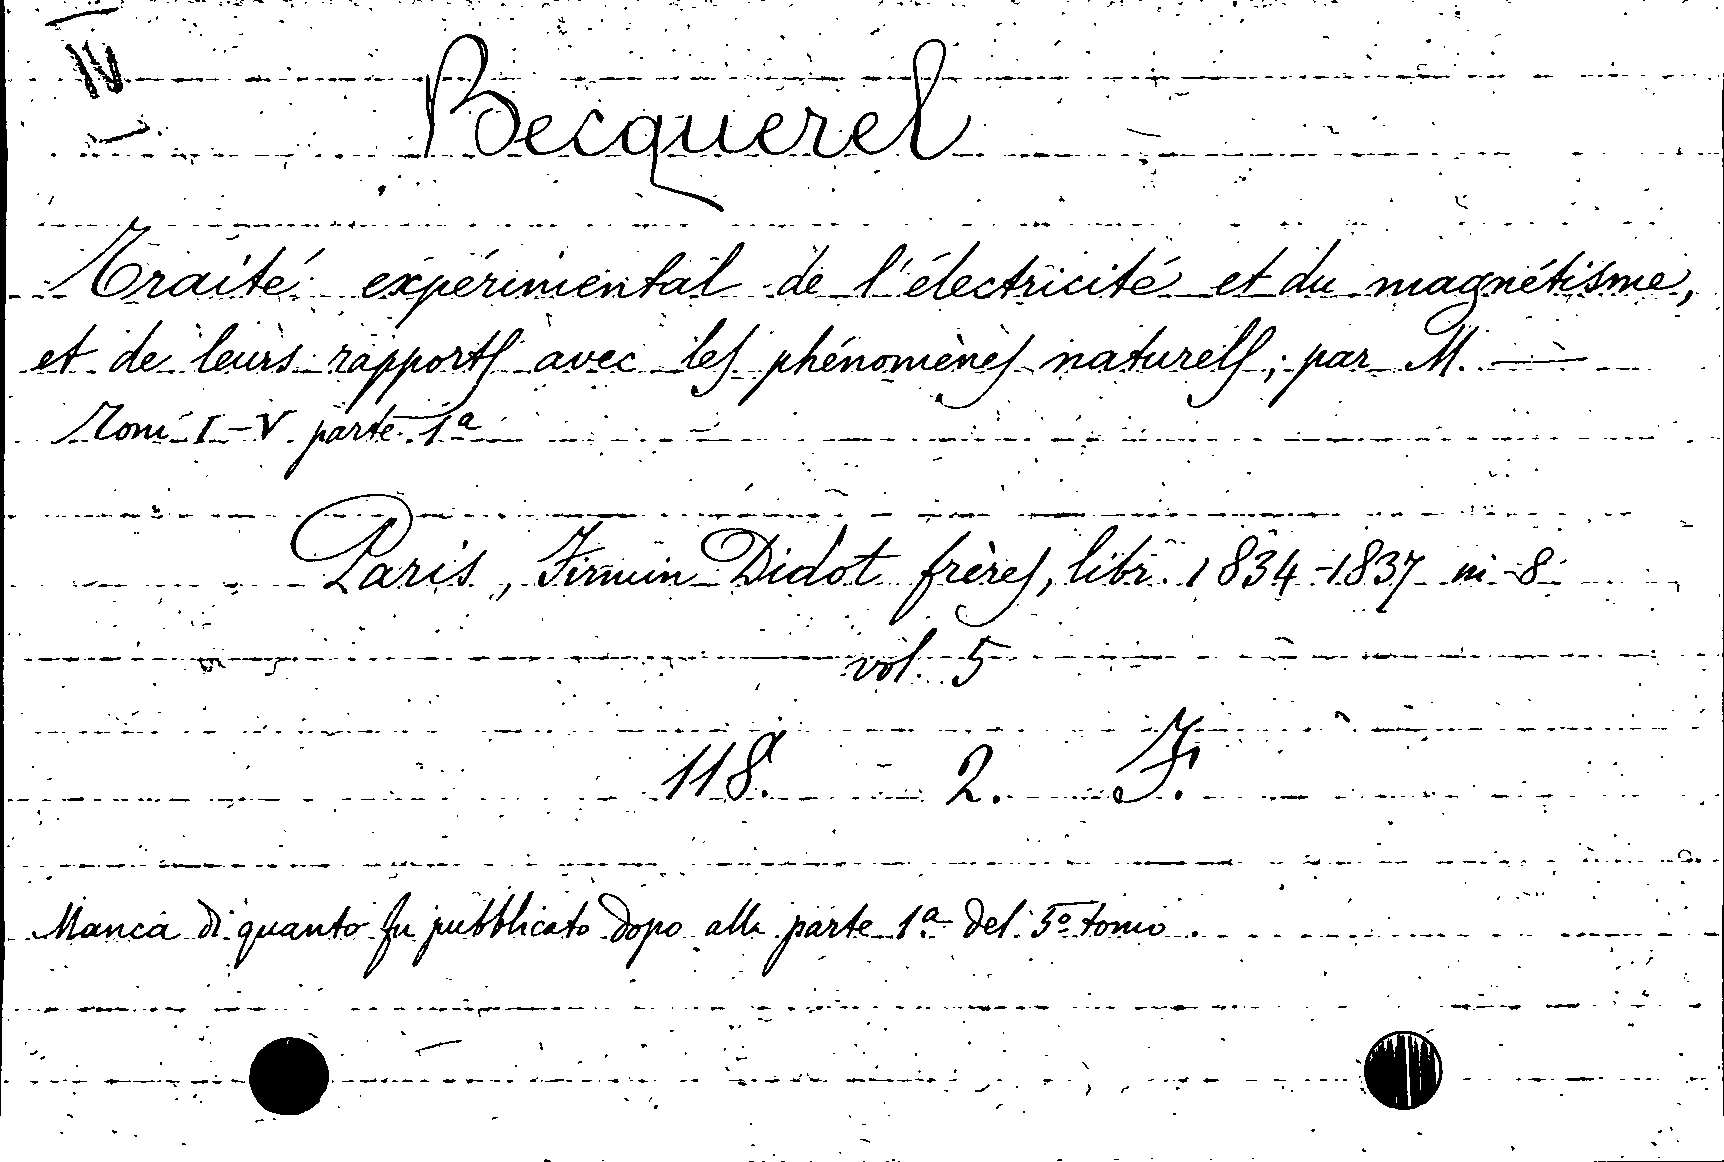 IV
Becquerel
Traité expérimental de l'électricité et du magnétisme,
et de leurs rapports avec les phénomènes naturels; par M. —
Tomi I-V parte 1ª
Paris, Firmin Didot frères, libr. 1834-1837 in-8
vol. 5
118. 2. F.
Manca di quanto fu pubblicato dopo alla parte 1ª del 5º tomo.